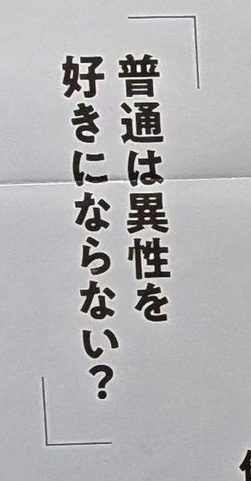 「普通は異性を
好きにならない？」